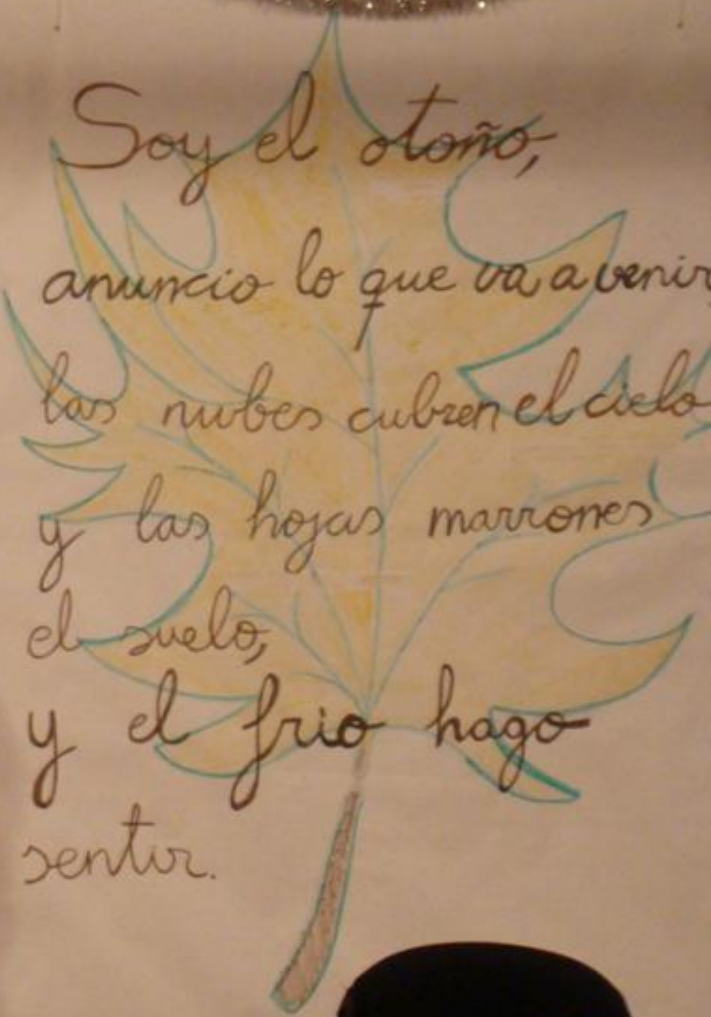 Soy el otoño,
anuncio lo que va a venir,
las nubes cubren el cielo
y las hojas marrones
el suelo,
y el frio hago
sentir.